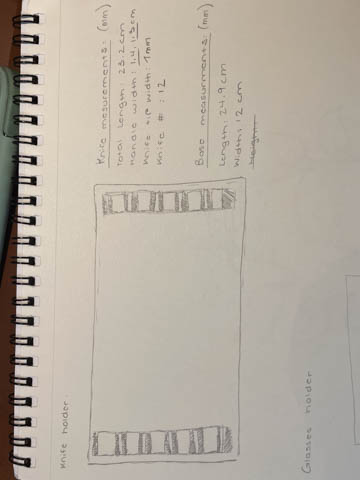 Knife holder.
Knife mesurements: (mm)
Total Length: 23.2cm
Handle width: 1.4, 1.3cm
Knife tip width: 1mm
Knife # : 12
Base measurments: (mm)
Length: 24.9cm
Width: 12 cm
Height:
Glasses holder